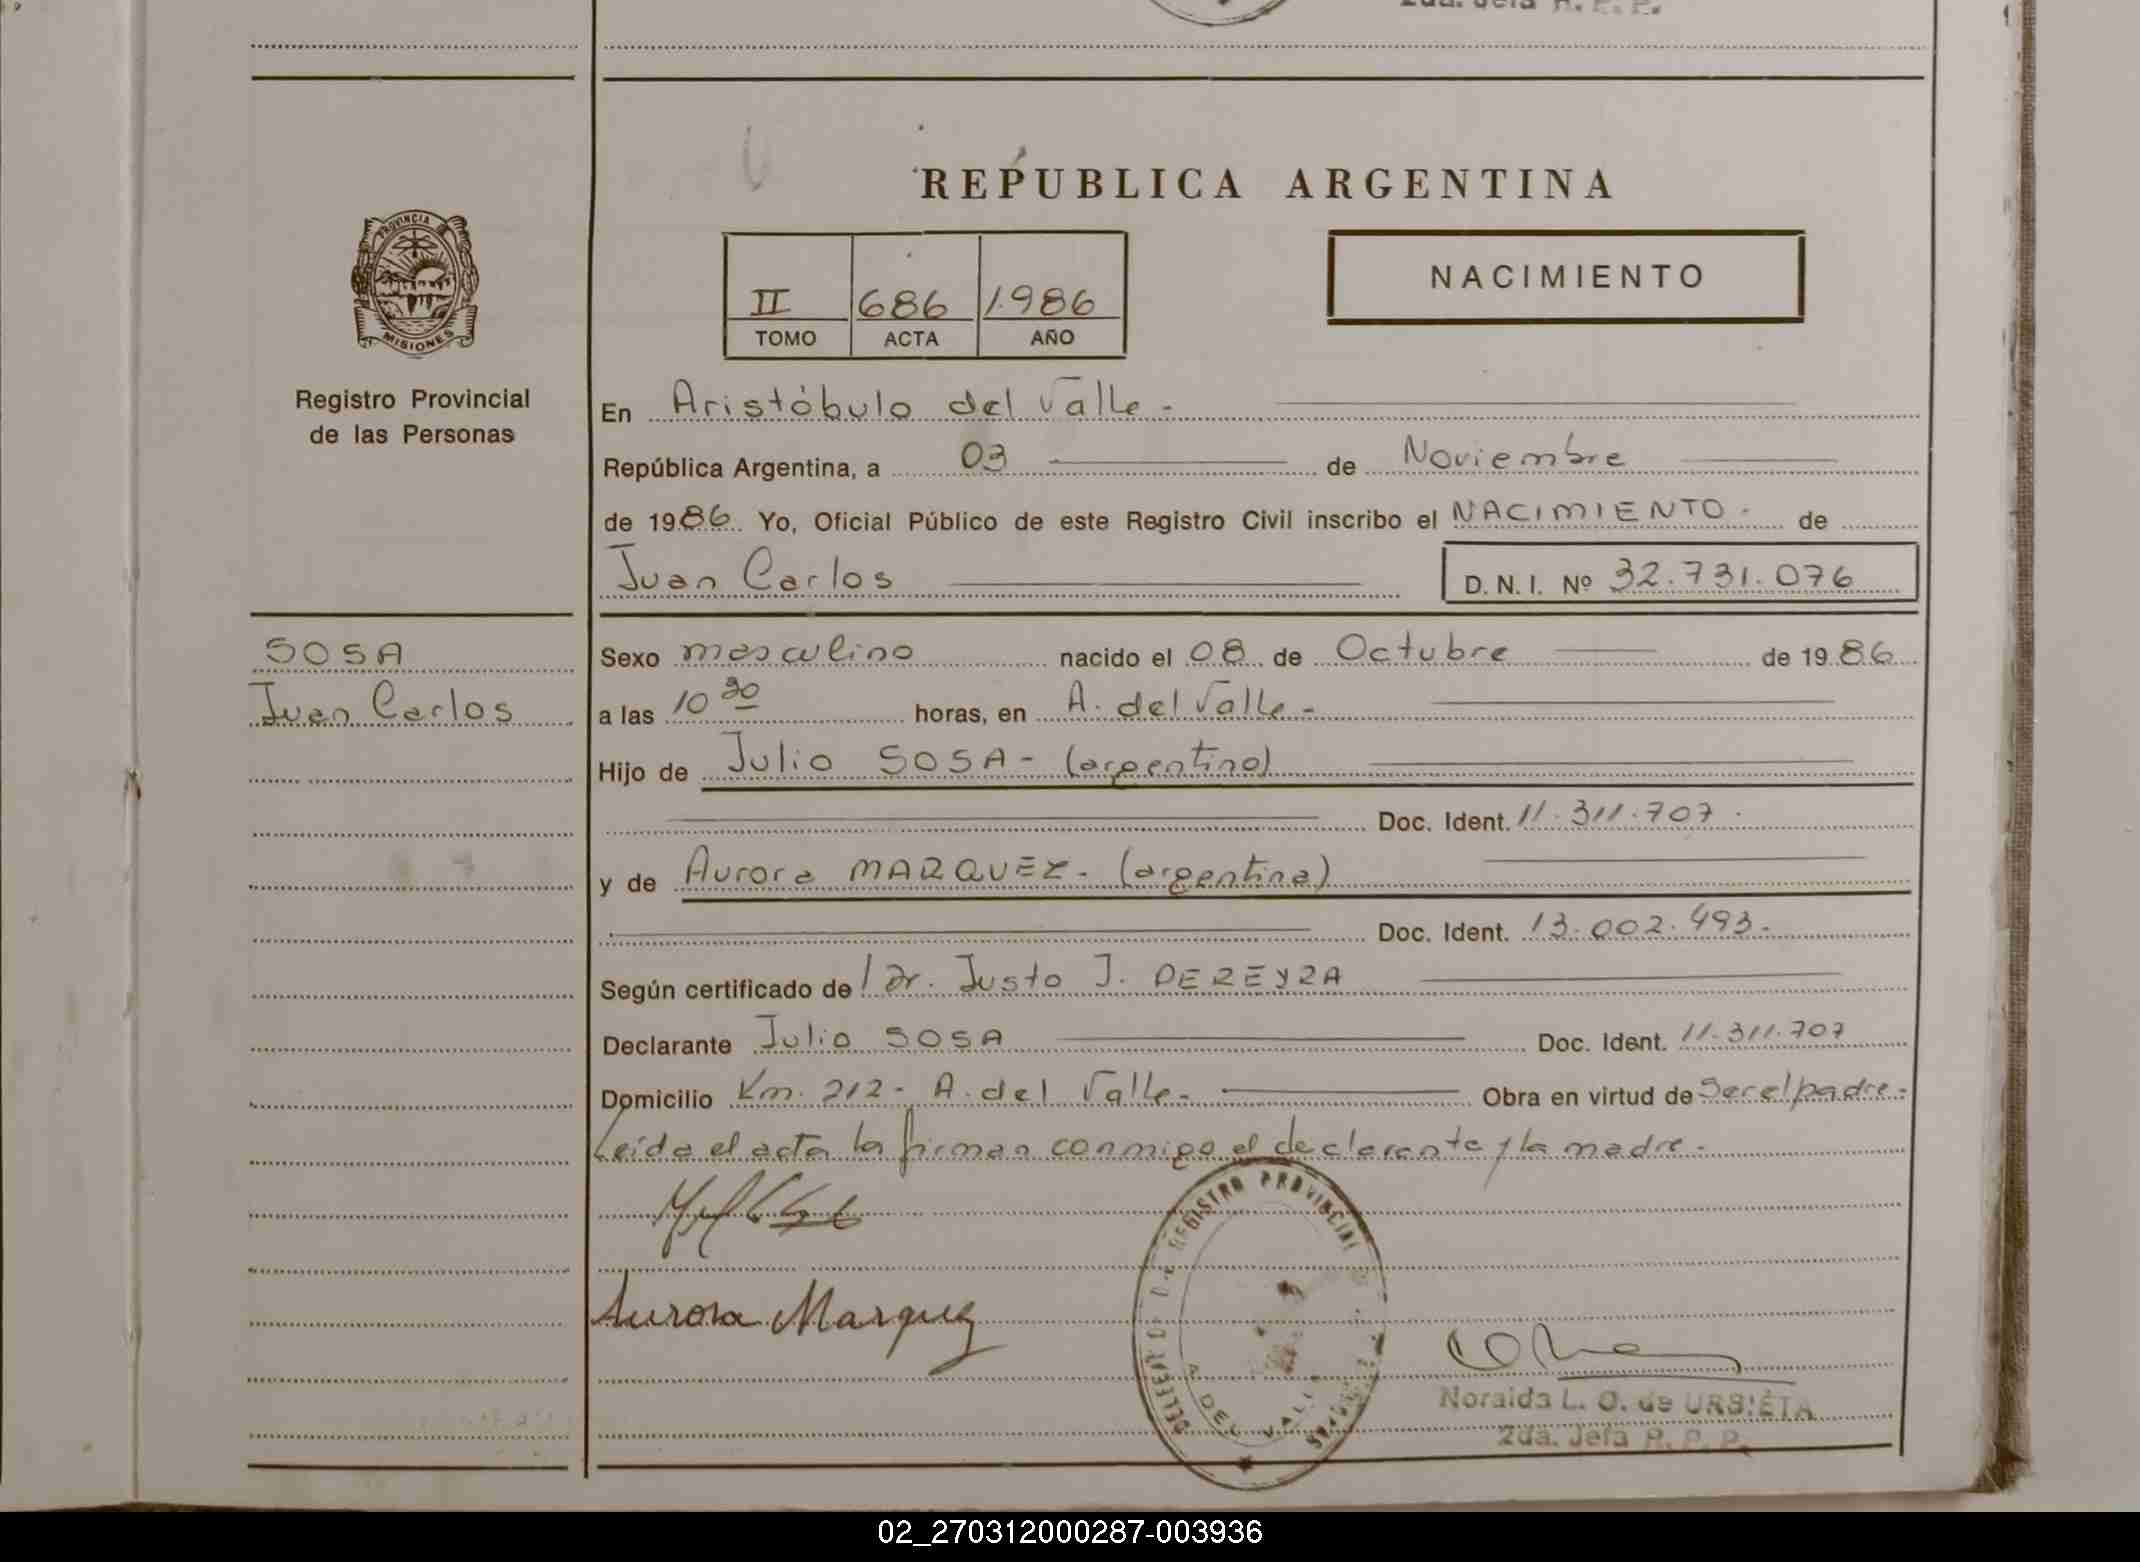 2da. Jefa R. P. P.
REPUBLICA ARGENTINA
PROVINCIA DE
MISIONES
Registro Provincial
de las Personas
II 686 1986
TOMO ACTA AÑO
NACIMIENTO
En Aristóbulo del Valle -
República Argentina, a 03 de Noviembre
de 1986 Yo, Oficial Público de este Registro Civil inscribo el NACIMIENTO - de
Juan Carlos D. N. I. Nº 32.731.076
SOSA
Juan Carlos
Sexo masculino nacido el 08 de Octubre de 1986
a las 10 30 horas, en A. del Valle -
Hijo de Julio SOSA - (argentino)
Doc. Ident. 11.311.707 -
y de Aurora MARQUEZ - (argentina)
Doc. Ident. 13.002.493 -
Según certificado de Dr. Justo J. PEREYRA
Declarante Julio SOSA Doc. Ident. 11.311.707
Domicilio Km. 212 - A. del Valle - Obra en virtud de Ser el padre -
Leída el acta la firman conmigo el declarante y la madre -
Aurora Marquez
REGISTRO PROVINCIAL
A. DEL VALLE
Noraida L. O. de URBIETA
2da. Jefa R. P. P.
02_270312000287-003936